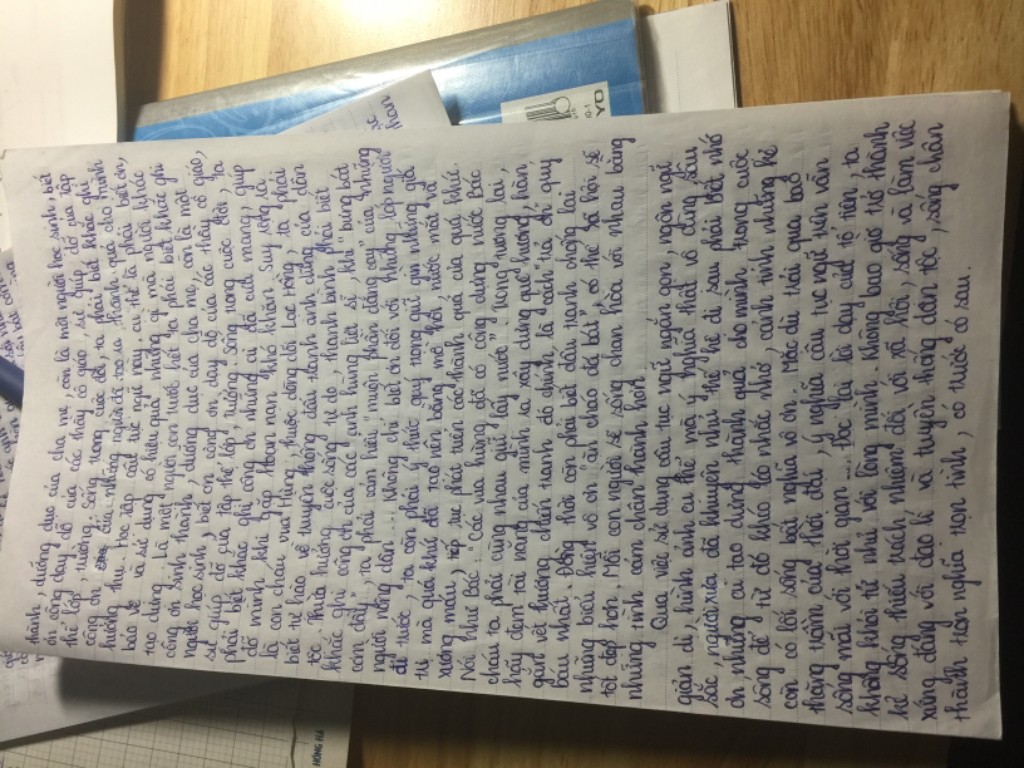 thành, dưỡng dục của cha mẹ, còn là một người học sinh, biết
ơn công dạy dỗ của các thầy cô giáo, sự giúp đỡ của tập
thể lớp, trường. Sống trong cuộc đời, ta phải biết khắc ghi
công ơn của những người đã tạo ra thành quả cho mình
hưởng thụ. Học tập câu tục ngữ này, cụ thể là phải biết ơn,
bảo vệ và sử dụng có hiệu quả những gì mà người khác
tạo dựng. Là một người con trước hết ta phải biết khắc ghi
công ơn sinh thành, dưỡng dục của cha mẹ, còn là một
người học sinh, biết ơn công ơn dạy dỗ của các thầy cô giáo,
sự giúp đỡ của tập thể lớp, trường. Sống trong cuộc đời, ta
phải biết khắc ghi công ơn những ai đã cưu mang, giúp
đỡ mình khi gặp hoạn nạn khó khăn. Suy rộng ra
là con cháu vua Hùng, thuộc dòng dõi Lạc Hồng, ta phải
biết tự hào về truyền thống đấu tranh anh dũng của dân
tộc. Thừa hưởng cuộc sống tự do, thanh bình phải biết
khắc ghi công ơn của các anh hùng liệt sĩ, khi "bưng bát
cơm đầy", ta phải cảm hiểu "muôn phần đắng cay" của những
người nông dân. Không chỉ biết ơn đối với những lớp người
đi trước, ta còn phải ý thức quý trọng giữ gìn những giá
trị mà quá khứ đã tạo nên bằng mồ hôi nước mắt và
xương máu, tiếp tục phát triển các thành quả của quá khứ.
Nói như Bác: "Các vua Hùng đã có công dựng nước Bác
cháu ta phải cùng nhau giữ lấy nước". Trong tương lai,
hãy đem tài năng của mình ra xây dựng quê hương, hàn
gắn vết thương chiến tranh đó chính là cách trả ơn quý
báu nhất. Đồng thời còn phải biết đấu tranh chống lại
những biểu hiện vô ơn "ăn cháo đá bát" có thế xã hội sẽ
tốt đẹp hơn. Mỗi con người sẽ sống chan hòa với nhau bằng
những tình cảm chân thành hơn.
Qua việc sử dụng câu tục ngữ ngắn gọn, ngôn ngữ
giản dị, hình ảnh cụ thể mà ý nghĩa thật vô cùng sâu
sắc, người xưa đã khuyên như thế hệ đi sau phải biết nhớ
ơn những ai tạo dựng thành quả cho mình trong cuộc
sống để từ đó khéo léo nhắc nhở, cảnh tỉnh những kẻ
còn có lối sống bất nghĩa vô ơn. Mặc dù trải qua bao
thăng trầm của thời đại, ý nghĩa câu tục ngữ vẫn vẫn
sống mãi với thời gian .... Đọc lại lời dạy của tổ tiên, ta
không khỏi tự nhủ với lòng mình. Không bao giờ trở thành
kẻ sống thiếu trách nhiệm đối với xã hội, sống và làm việc
xứng đáng với đạo lí và truyền thống dân tộc, sống chân
thành trọn nghĩa trọn tình, có trước có sau.
HỒNG HÀ